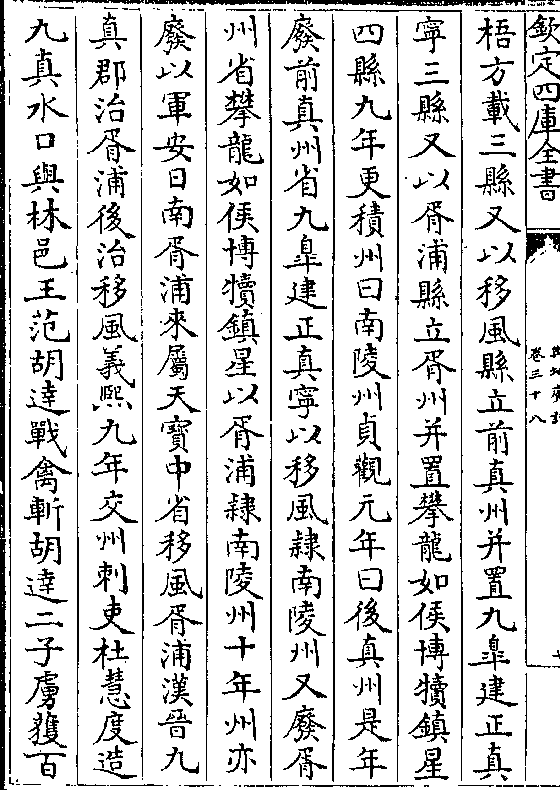 欽定四庫全書
卷三十八
梧方載三縣又以移風縣立前真州并置九皐建正真
寧三縣又以胥浦縣立胥州并置攀龍如侯博犢鎮星
四縣九年更積州曰南陵州貞觀元年曰後真州是年
廢前真州省九皐建正真寧以移風隸南陵州又廢胥
州省攀龍如侯博犢鎮星以胥浦隸南陵州十年州亦
廢以軍安日南胥浦來屬天寶中省移風胥浦漢晉九
真郡治胥浦後治移風義熙九年交州刺吏杜慧度造
九真水口與林邑王范胡達戰禽斬胡達二子虜獲百